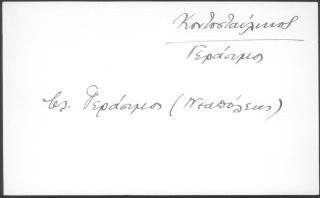 Κοντοσταύλινος
Γεράσιμος
βλ. Γεράσιμος (Νεαπόλεως)